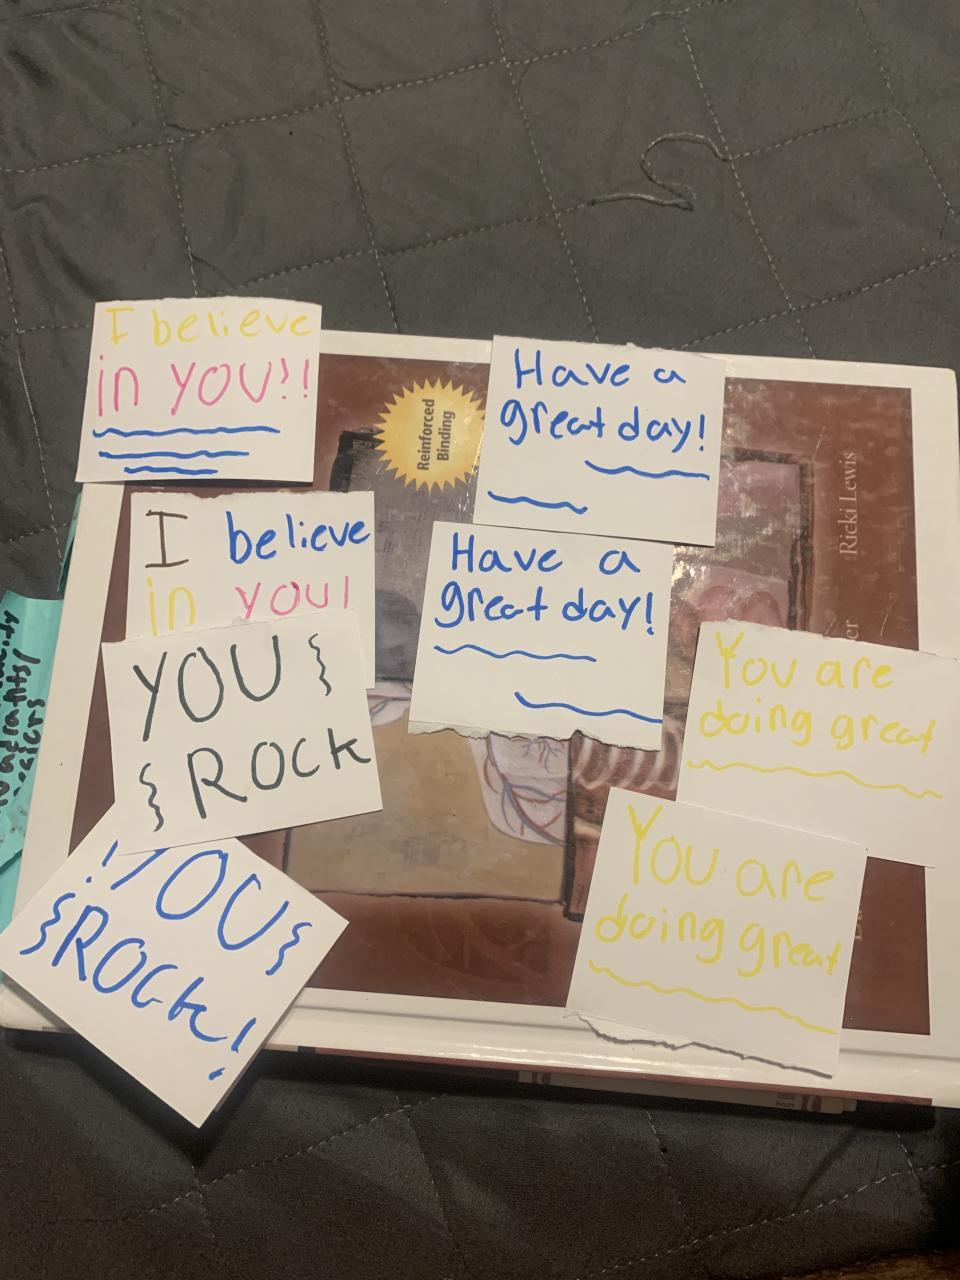 I believe
in YOU!!
Reinforced
Binding
Have a
great day!
Ricki Lewis
I believe
in you!
Have a
great day!
YOU
ROCK
You are
doing great
YOU
ROCK!
You are
doing great